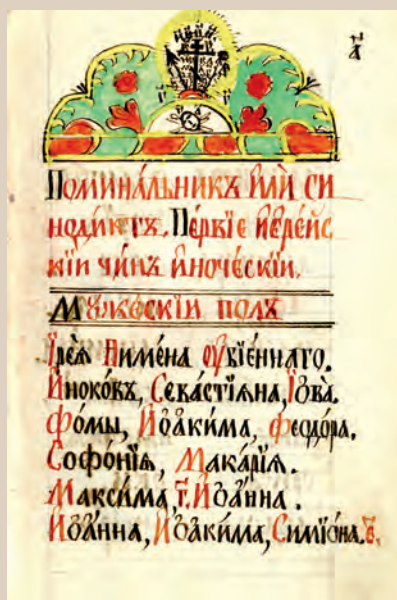 а҃
Помина́льникъ и҆лѝ си
нодиктъ. Пе́рвїе и҆ере́йс
кїи чи́нъ и҆но́ческїи.
Му́жескїи полъ
І҆ере́а Пиме́на оу҆бїе́ннаго.
И҆ноковъ, Севастїѧна, І҆ѡ́ва.
Фомы̀, И҆ѡаки́ма, Феодо́ра.
Софо́нїѧ, Мака́рїѧ.
Макси́ма, г҃. И҆ѡа́нна.
И҆ѡа́нна, И҆ѡаки́ма, Симїо́на. в҃.